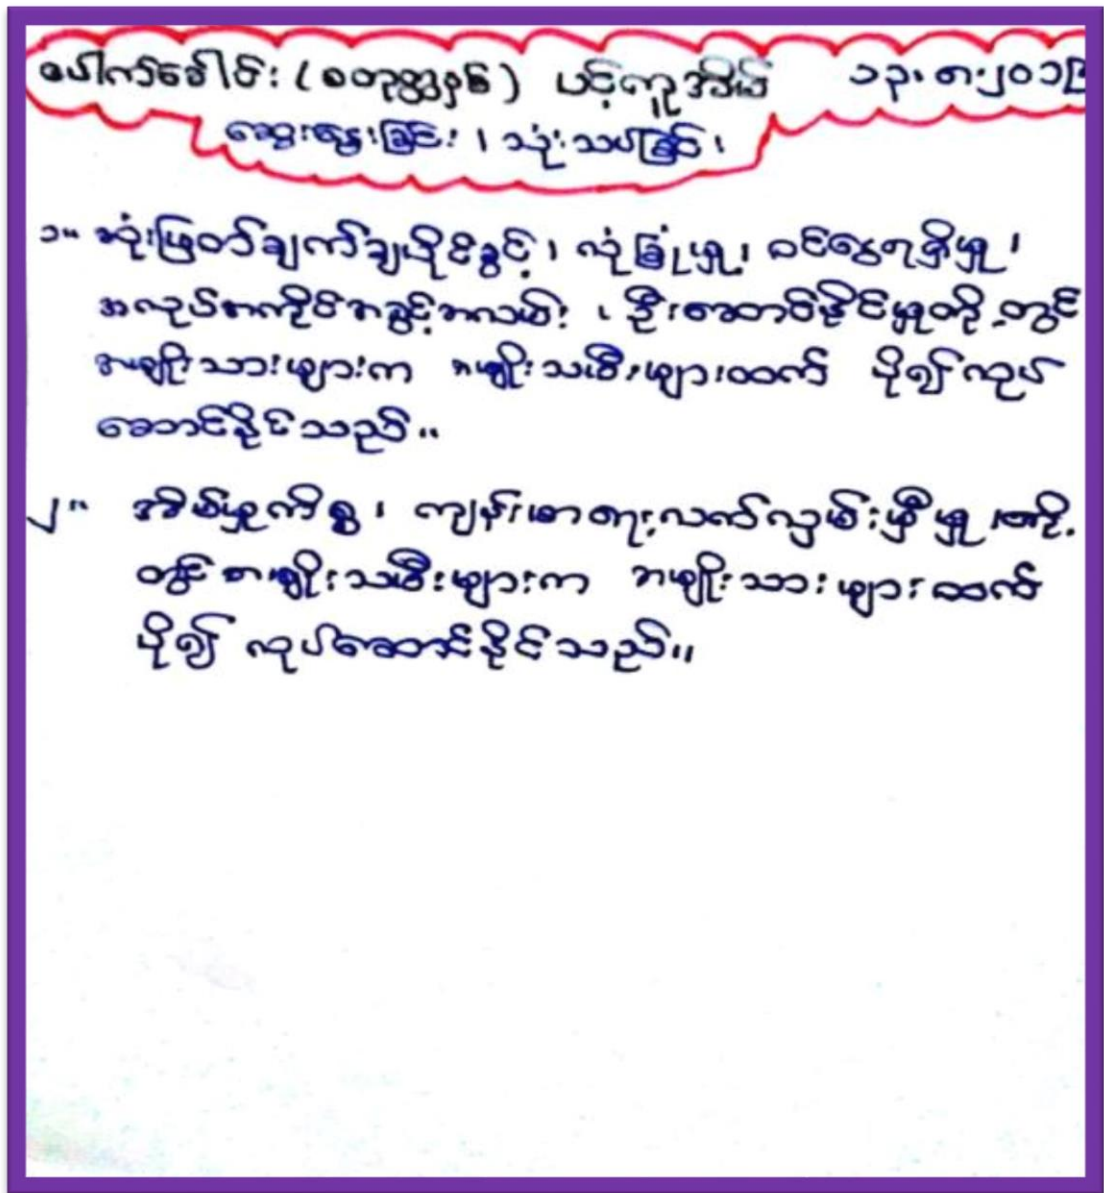 ပေါက်ခေါင်း (စတုတ္ထနှစ်) ပင့်ကူအိမ် ၁၃၊ ၈၊ ၂၀၁၉
ဆွေးနွေးခြင်း ၊ သုံးသပ်ခြင်း ၊
၁။ ဆုံးဖြတ်ချက်ချပိုင်ခွင့် ၊ လုံခြုံမှု ၊ ဝင်ငွေရရှိမှု ၊
အလုပ်အကိုင်အခွင့်အလမ်း ၊ ဦးဆောင်နိုင်မှုတို့တွင်
အမျိုးသားများက အမျိုးသမီးများထက် ပို၍လုပ်
ဆောင်နိုင်သည်။
၂။ အိမ်မှုကိစ္စ ၊ ကျန်းမာရေးလက်လှမ်းမှီမှု တို့
တွင် အမျိုးသမီးများက အမျိုးသားများထက်
ပို၍ လုပ်ဆောင်နိုင်သည်။